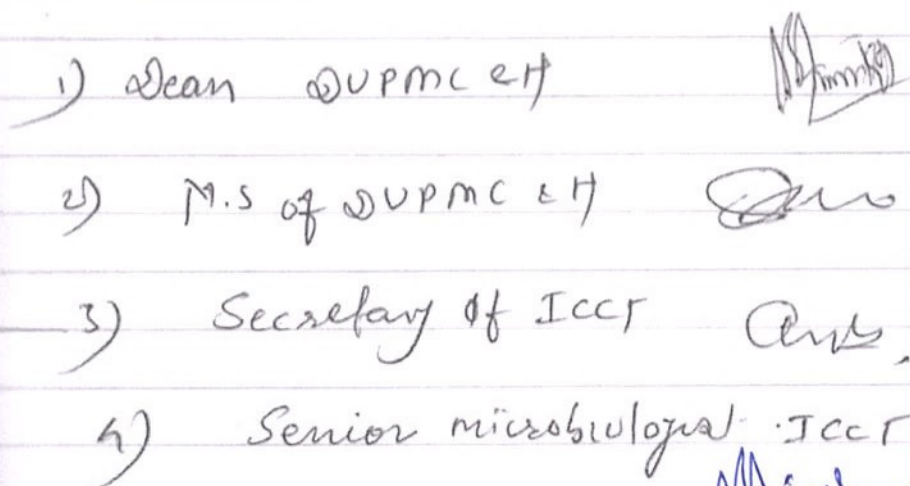 1) Dean DVPMC &H
2) M.S of DVPMC &H
3) Secretary of ICCT
4) Senior microbiologist ICCT